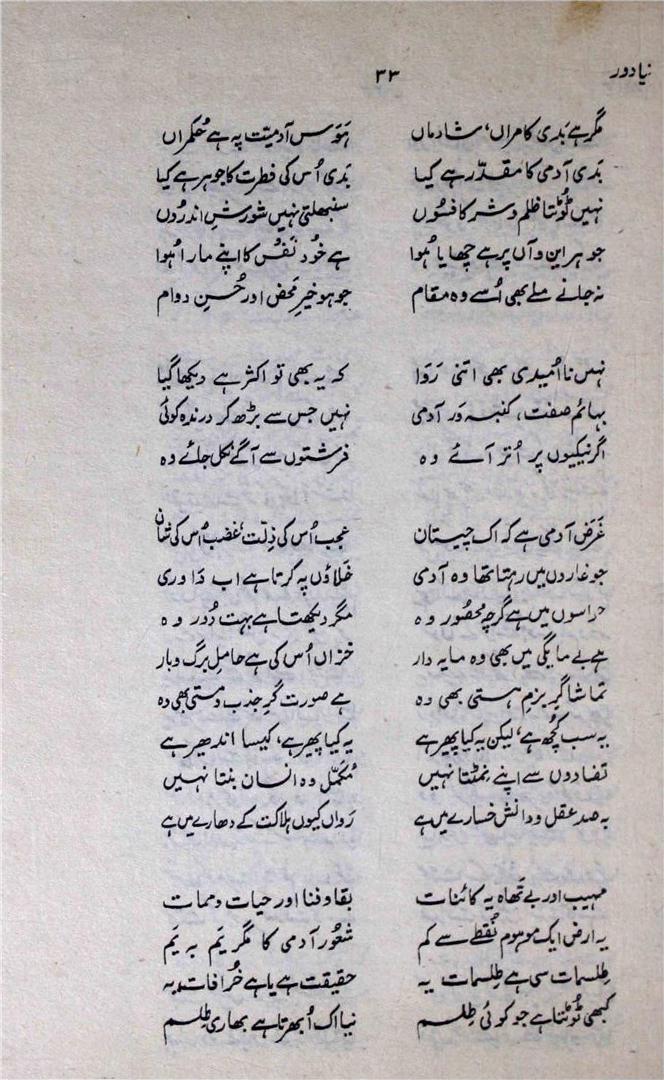 نیا دور ۳۳
مگر ہے بَدی کامراں، شادماں ہَوَس آدمیّت پہ ہے حُکمراں
بَدی آدمی کا مقدّر ہے کیا بَدی اُس کی فطرت کا جوہر ہے کیا
نہیں ٹُوٹتا ظلم و شر کا فسُوں سنبھلتی نہیں شورشِ اندرُوں
جو ہر این و آں پر ہے چھایا ہُوا ہے خُود نَفْس کا اپنے مارا ہُوا
نہ جانے ملے بھی اُسے وہ مقام جو ہو خیرِ مَحض اور حُسنِ دوام
نہیں نااُمیدی بھی اتنی رَوَا کہ یہ بھی تو اکثر ہے دیکھا گیا
بہائم صفت، کنبہ وَر آدمی نہیں جس سے بڑھ کر درندہ کوئی
اگر نیکیوں پر اُتر آئے وہ فرشتوں سے آگے نکل جائے وہ
غَرَض آدمی ہے کہ اک چیستان عجب اُس کی ذِلّت، غضب اُس کی شان
جو غاروں میں رہتا تھا وہ آدمی خَلاؤں پہ کرتا ہے اب دَاوری
حواسوں میں ہے گرچہ محصُور وہ مگر دیکھتا ہے بہت دُور وہ
ہے بے مایگی میں بھی وہ مایہ دار خزاں اُس کی ہے حاملِ برگ و بار
تماشا گرِ بزمِ ہستی بھی وہ ہے صورت گرِ جذب و مستی بھی وہ
یہ سب کُچھ ہے، لیکن یہ کیا پھیر ہے یہ کیا پھیر ہے، کیسا اندھیر ہے
تضادوں سے اپنے نمٹتا نہیں مُکمّل وہ انسان بنتا نہیں
بہ صد عقل و دانش خسارے میں ہے رَواں کیوں ہلاکت کے دھارے میں ہے
مہیب اور بے تھاہ یہ کائنات بقا و فنا اور حیات و ممات
یہ ارض ایک موہوم نُقطے سے کم شعُور آدمی کا مگر یَم بہ یَم
طِلسمات سی ہے طِلسمات یہ حقیقت ہے یا ہے خُرافات یہ
کبھی ٹُوٹتا ہے جو کوئی طِلسم نیا اک اُبھرتا ہے بھاری طِلسم